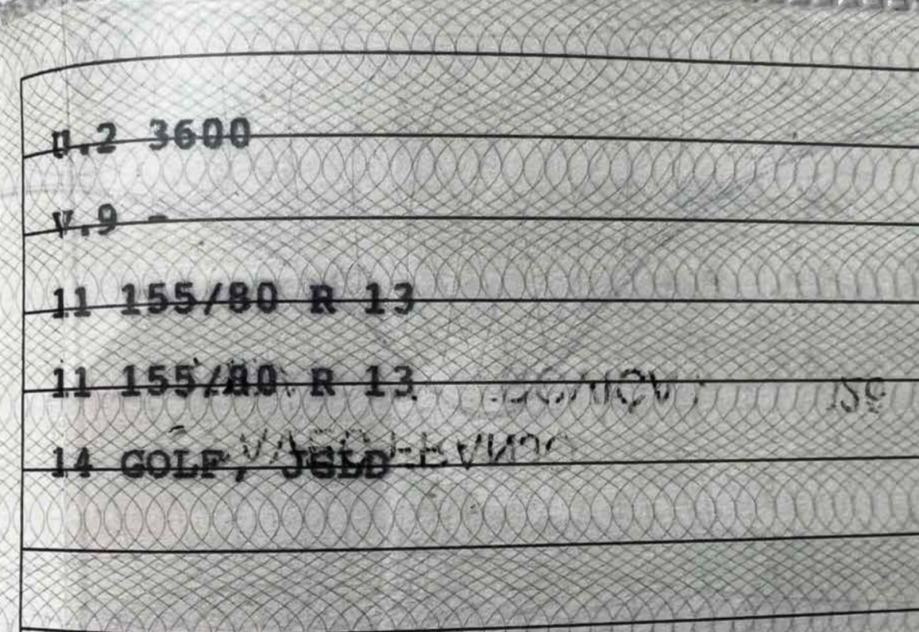 U.2 3600
V.9 -
11 155/80 R 13
11 155/80 R 13
14 GOLF, JGLD